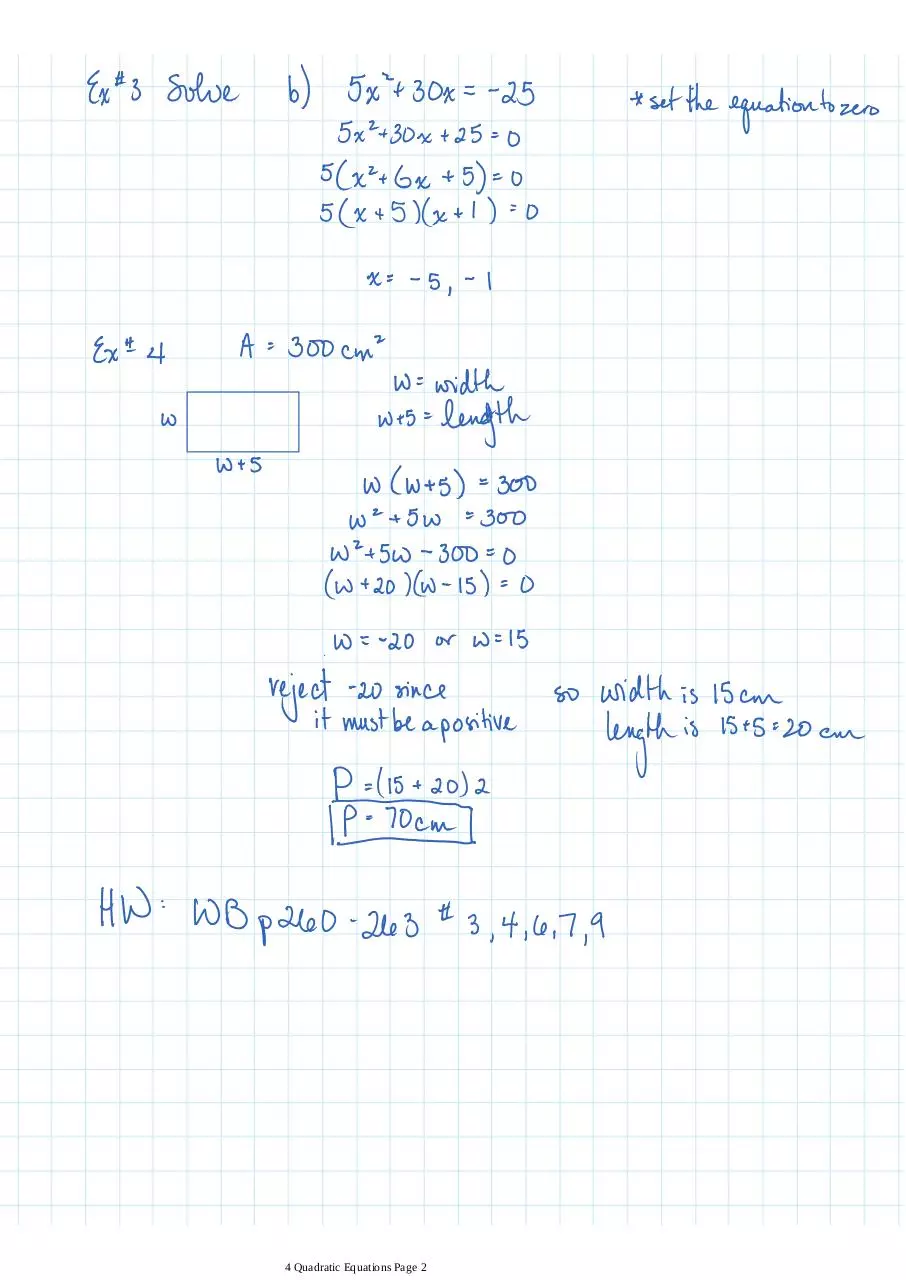 Ex #3 Solve b) 5x² + 30x = -25 * set the equation to zero
5x² + 30x + 25 = 0
5(x² + 6x + 5) = 0
5(x + 5)(x + 1) = 0
x = -5, -1
Ex # 4 A = 300 cm²
w = width
w w+5 = length
w+5
w(w+5) = 300
w² + 5w = 300
w² + 5w - 300 = 0
(w + 20)(w - 15) = 0
w = -20 or w = 15
reject -20 since so width is 15 cm
it must be a positive length is 15+5 = 20 cm
P = (15 + 20) 2
P = 70 cm
HW: WB p 260 - 263 # 3, 4, 6, 7, 9
4 Quadratic Equations Page 2